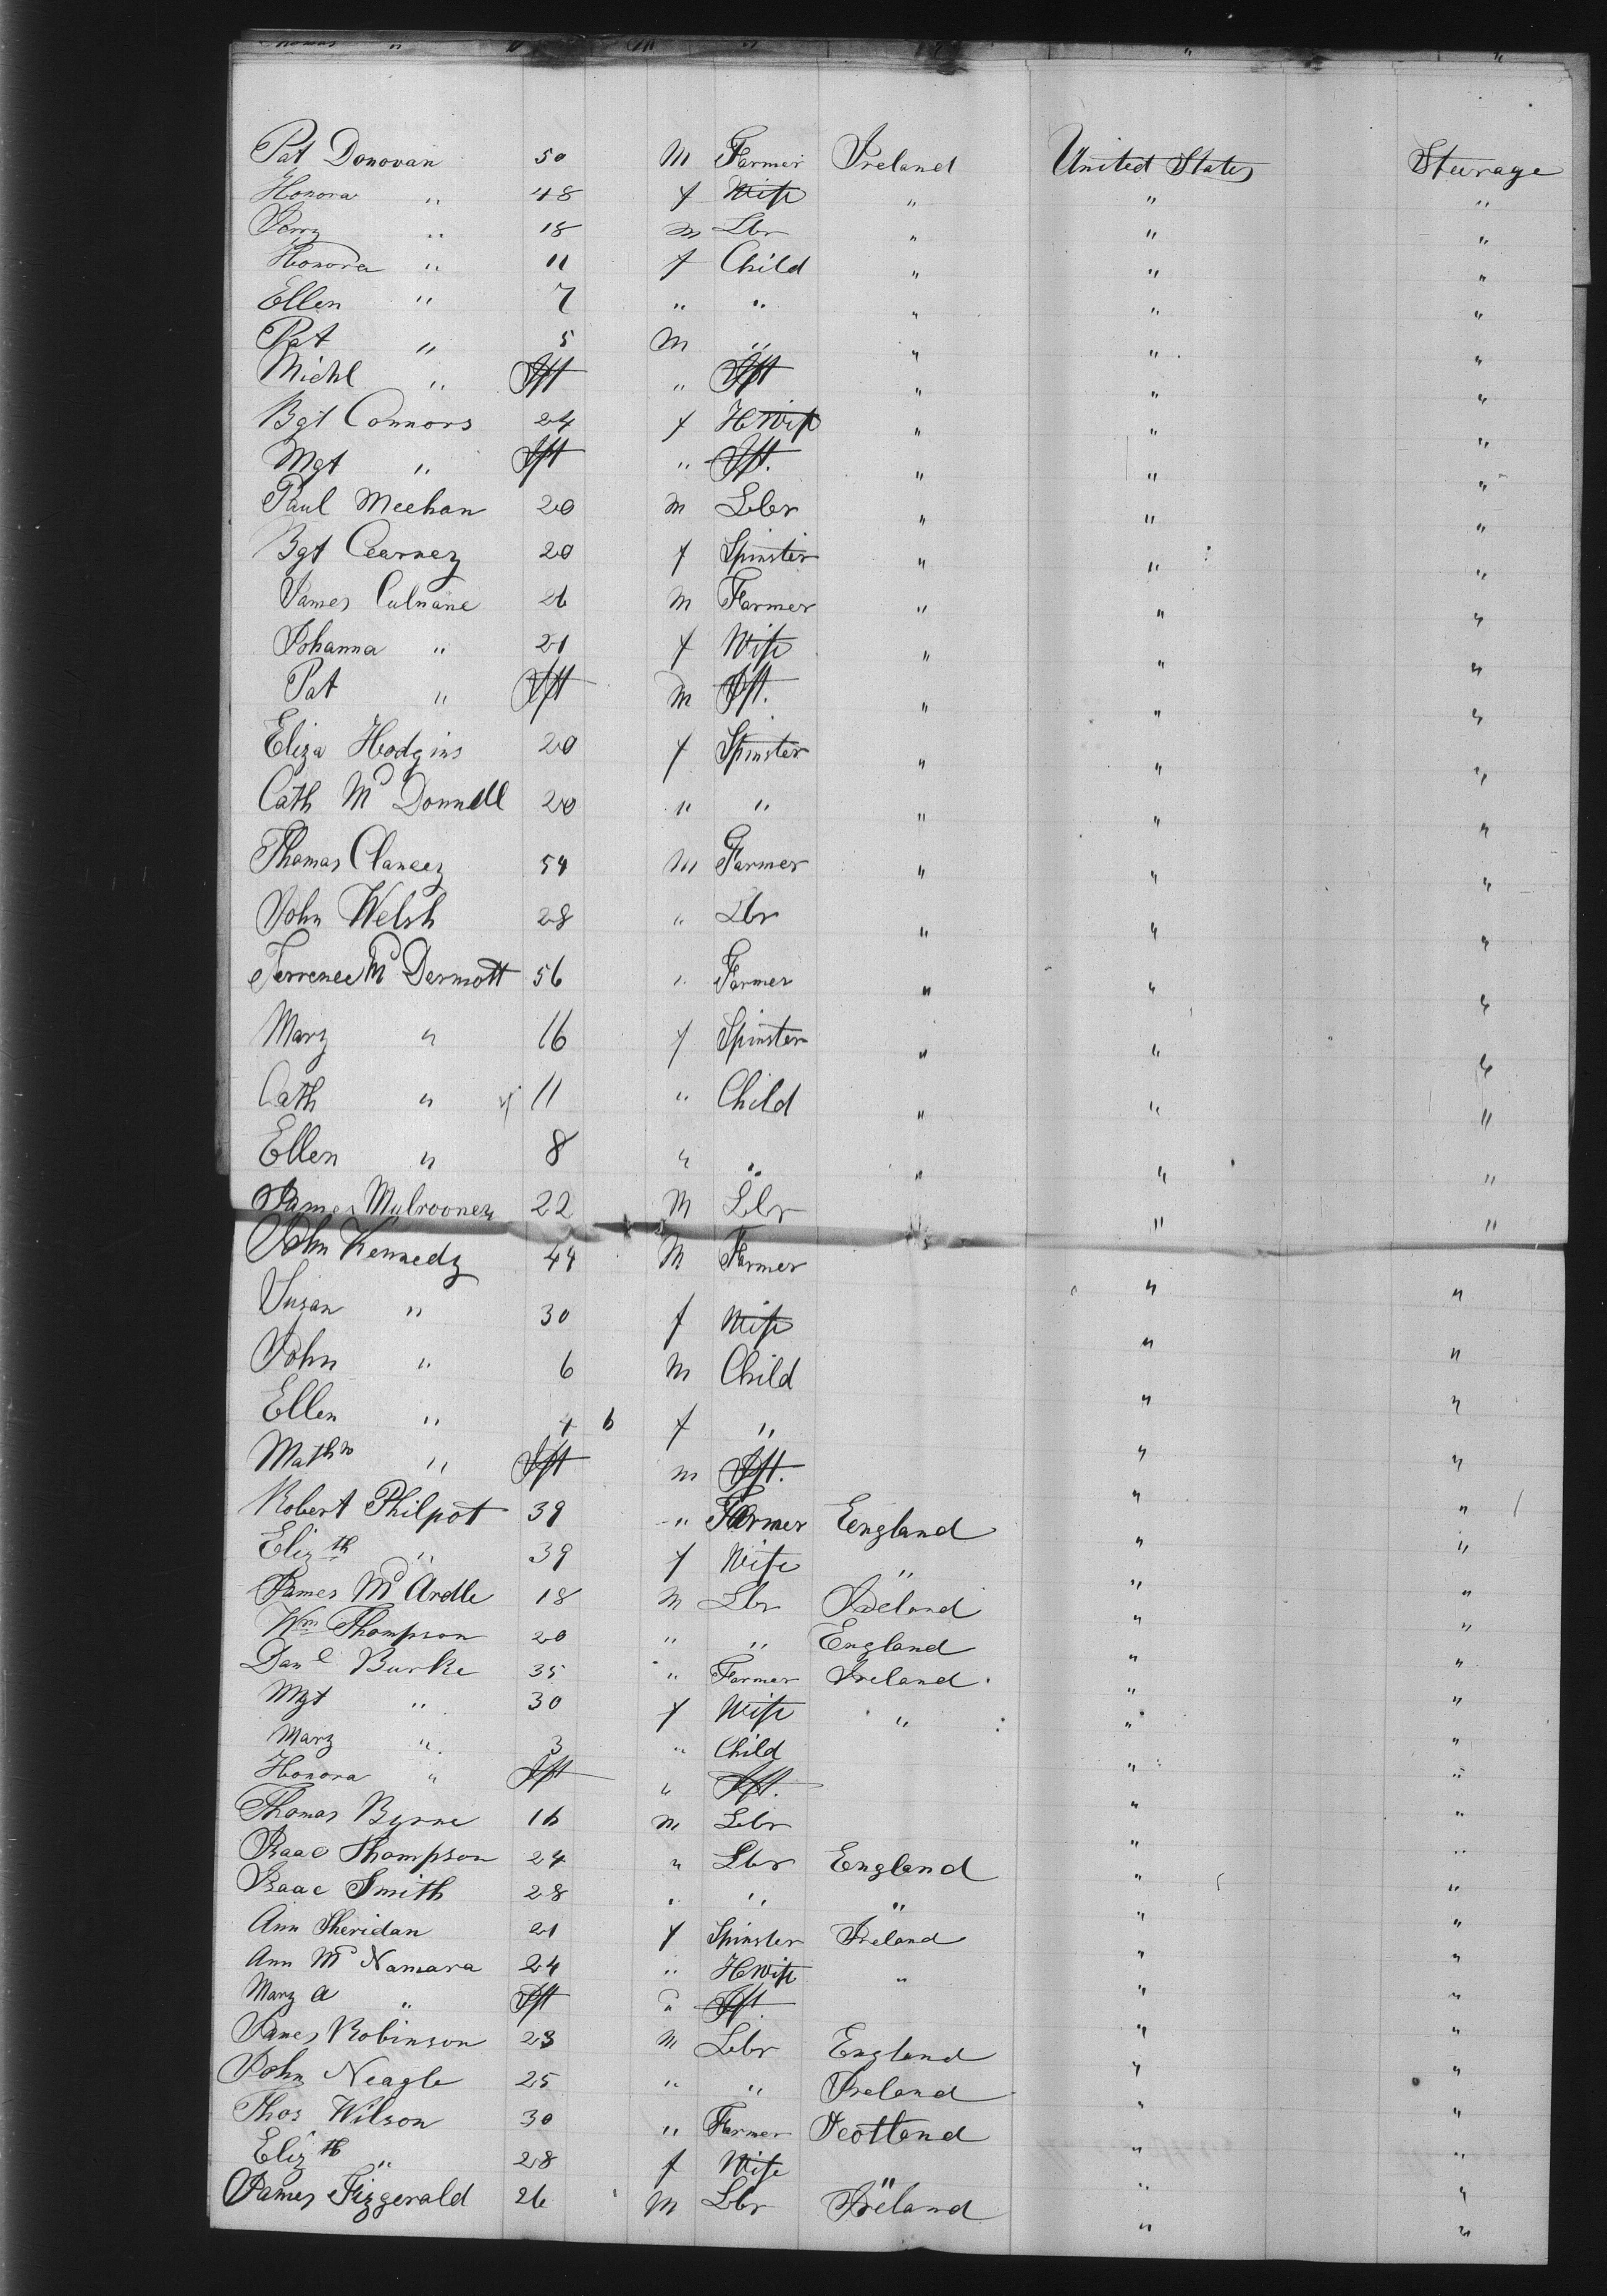 Thomas " " "
Pat Donovan 50 M Farmer Ireland United States Steerage
Honora " 48 f Wife " " "
Jerry " 18 m Lbr " " "
Honora " 11 f Child " " "
Ellen " 7 " " " " "
Pat " 5 M " " " "
Michl " Ift " Ift " " "
Bgt Connors 24 f HWife " " "
Mgt " Ift " Ift. " " "
Paul Meehan 20 M Lbr " " "
Bgt Cearney 20 f Spinster " " "
James Culnane 26 M Farmer " " "
Johanna " 21 f Wife " " "
Pat " Ift M Ift. " " "
Eliza Hodgins 20 f Spinster " " "
Cath Mc Donnell 20 " " " " "
Thomas Clancey 54 M Farmer " " "
John Welsh 28 " Lbr " " "
Terrence Mc Dermott 56 " Farmer " " "
Mary " 16 f Spinster " " "
Cath " 11 " Child " " "
Ellen " 8 " " " " "
James Mulrooney 22 M Lbr " "
John Kennedy 44 M Farmer " "
Susan " 30 f Wife " "
John " 6 M Child " "
Ellen " 4 6 f " " "
Mathw " Ift m Ift. " "
Robert Philpot 39 " Farmer England " "
Elizth " 39 f Wife " " "
James Mc Ardle 18 M Lbr Ireland " "
Wm Thompson 20 " " England " "
Danl Burke 35 " Farmer Ireland " "
Mgt " 30 f Wife " " "
Mary " 3 " Child " "
Honora " Ift " Ift. " "
Thomas Byrne 16 M Lbr " "
Isaac Thompson 24 " Lbr England " "
Isaac Smith 28 " " " " "
Ann Sheridan 21 f Spinster Ireland " "
Ann Mc Namara 24 " HWife " " "
Mary A " Ift " Ift. " "
James Robinson 23 M Lbr England " "
John Neagle 25 " " Ireland " "
Thos Wilson 30 " Farmer Scotland " "
Elizth " 28 f Wife " " "
James Fizgerald 26 M Lbr Ireland " "